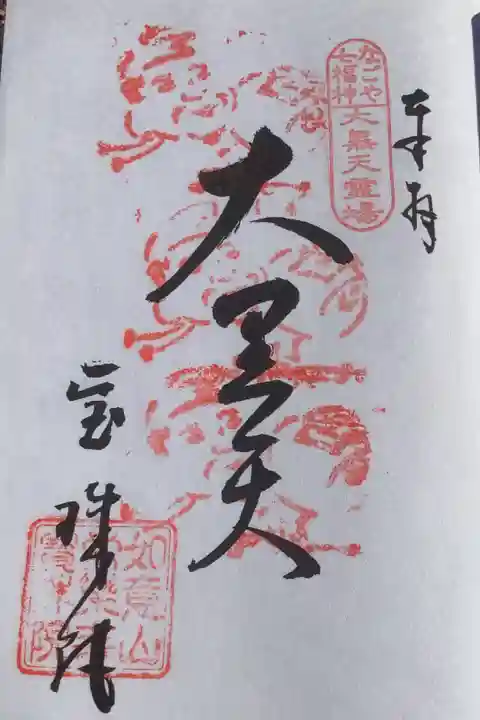 奉拝
なごや
七福神
大黒天霊場
大黒天
宝珠院
如意山
常樂寺
寶珠院